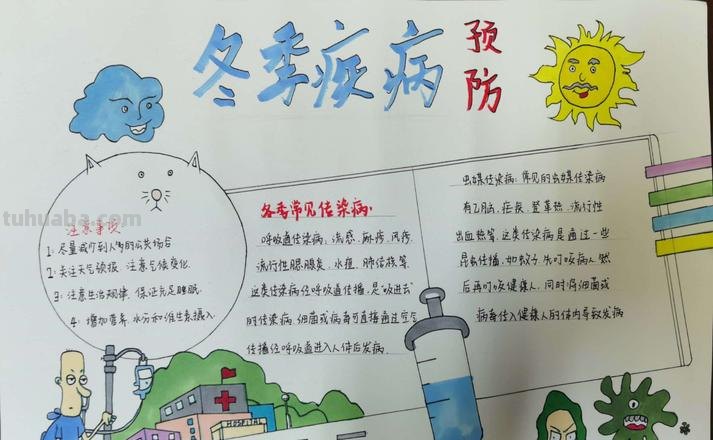 冬季疾病
预
防
tuhuaba.com
注意事项:
1: 尽量减少到人多的公共场合
2: 关注天气预报.注意气候变化.
3: 注意生活规律,保证充足睡眠.
4: 增加营养.水分和维生素摄入.
冬季常见传染病:
呼吸道传染病:流感、麻疹、风疹、
流行性腮腺炎、水痘、肺结核等.
这类传染病经呼吸道传播,是"吸进去"
的传染病.细菌或病毒可直接通过空气
传播经呼吸道进入人体后发病.
虫媒传染病:常见的虫媒传染病
有乙脑、疟疾、登革热、流行性
出血热等.这类传染病是通过一些
昆虫传播,如蚊子.先叮咬病人然
后再叮咬健康人.同时将细菌或
病毒传入健康人的体内导致发病
HOSPITAL